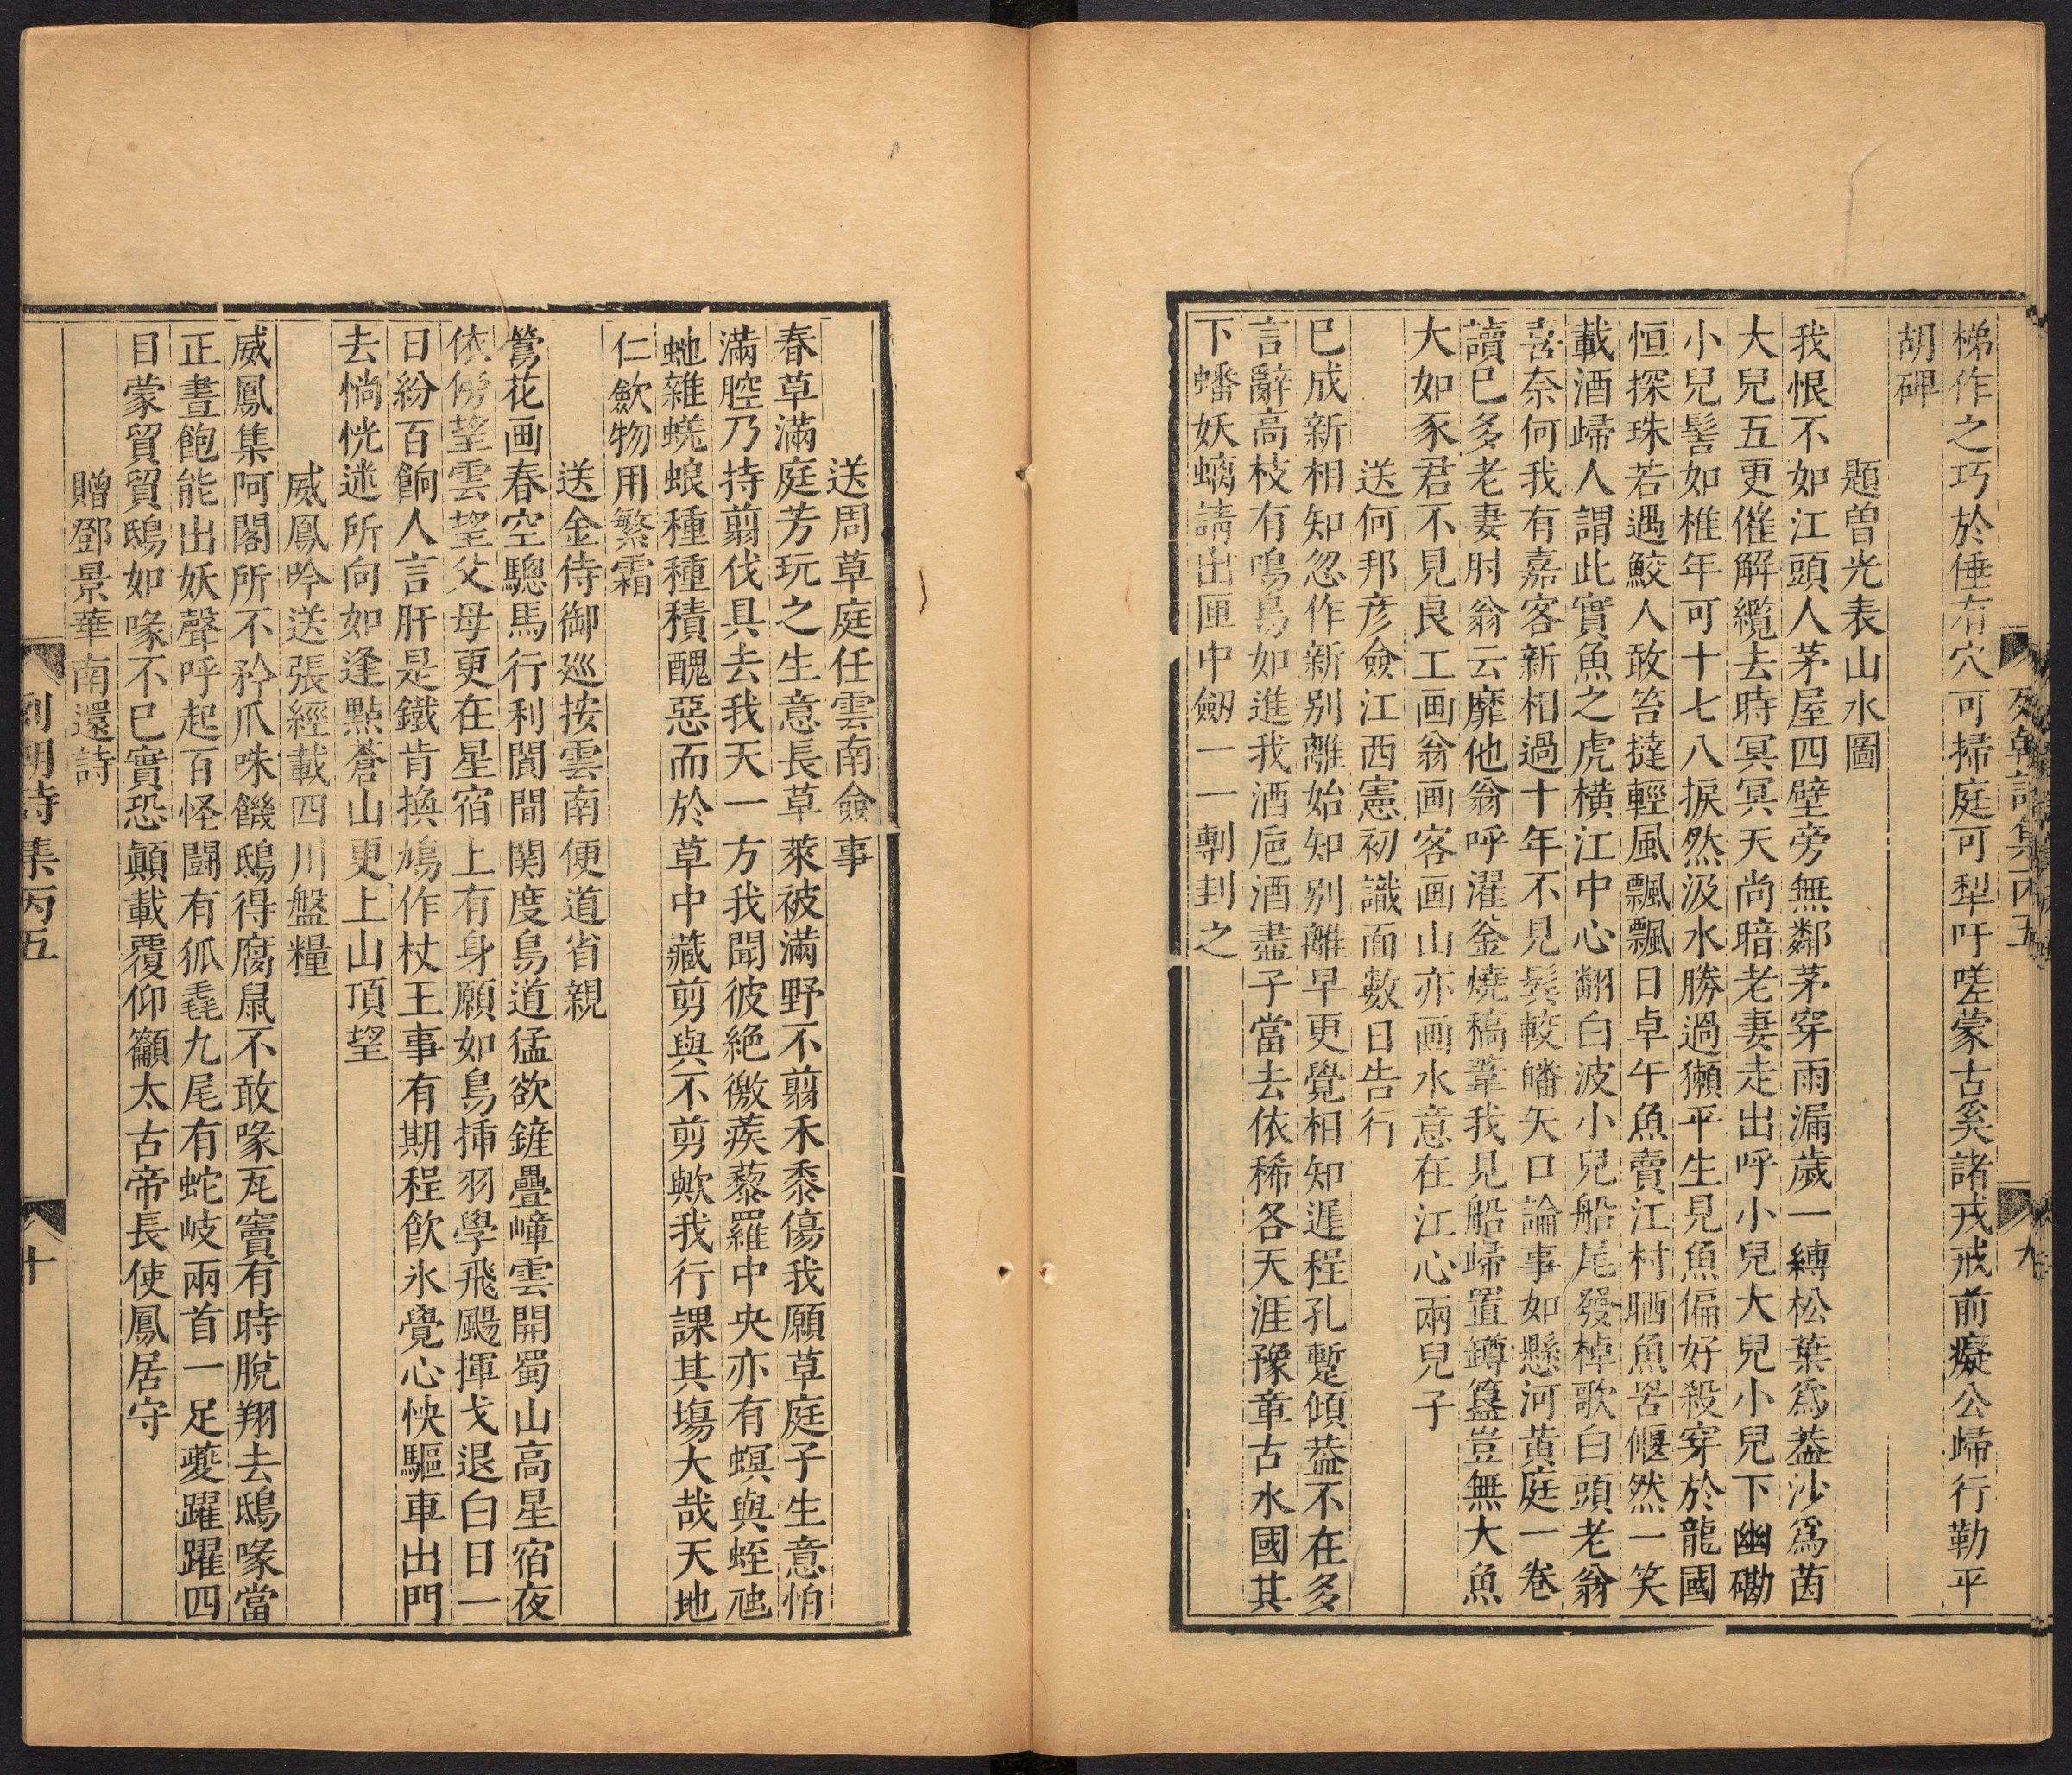 梯作之巧於倕有穴可掃庭可犁吁嗟蒙古奚諸戎戒前癡公歸行勒平
胡碑
題曽光表山水圖
我恨不如江頭人茅屋四壁旁無鄰茅穿雨漏歲一縛松葉爲葢沙爲茵
大兒五更催解纜去時冥冥天尚暗老妻走出呼小兒大兒小兒下幽磡
小兒髻如椎年可十七八捩然汲水勝過獺平生見魚偏好殺穿於龍國
恒探珠若遇鮫人敢笞撻輕風飄飄日卓午魚賣江村晒魚罟偃然一笑
載酒歸人謂此實魚之虎横江中心翻白波小兒船尾發棹歌白頭老翁
喜奈何我有嘉客新相過十年不見鬂較皤矢口論事如懸河黄庭一卷
讀已多老妻肘翁云靡他翁呼濯釡燒稿葦我見船歸置罇簋豈無大魚
大如豕君不見良工画翁画客画山亦画水意在江心兩兒子
送何邦彦僉江西憲初識面數日告行
已成新相知忽作新别離始知别離早更覺相知遲程孔蹔傾葢不在多
言辭高枝有鳴鳥如進我酒巵酒盡子當去依稀各天涯豫章古水國其
下蟠妖螭請出匣中劒一一剸刲之
列朝詩集丙五
九
送周草庭任雲南僉事
春草滿庭芳玩之生意長草萊被滿野不翦禾黍傷我願草庭子生意怕
滿腔乃持翦伐具去我天一方我聞彼絶徼蒺藜羅中央亦有螟與蛭虺
虵雜蟯蜋種種積醜惡而於草中藏剪與不剪歟我行課其塲大哉天地
仁歛物用繁霜
送金侍御巡按雲南便道省親
鶯花画春空驄馬行利閬間関度鳥道猛欲鏟疊嶂雲開蜀山高星宿夜
依傍望雲望父母更在星宿上有身願如鳥揷羽學飛颺揮戈退白日一
日紛百餉人言肝是鐵肯換鳩作杖王事有期程飲氷覺心怏驅車出門
去惝恍迷所向如逢點蒼山更上山頂望
威鳳吟送張經載四川盤糧
威鳳集阿閣所不矜爪咮饑鴟得腐鼠不敢喙瓦竇有時脫翔去鴟喙當
正晝飽能出妖聲呼起百怪鬪有狐毳九尾有蛇岐兩首一足夔躍躍四
目蒙貿貿鴟如喙不已實恐顚載覆仰籲太古帝長使鳳居守
贈鄧景華南還詩
列朝詩集丙五
十